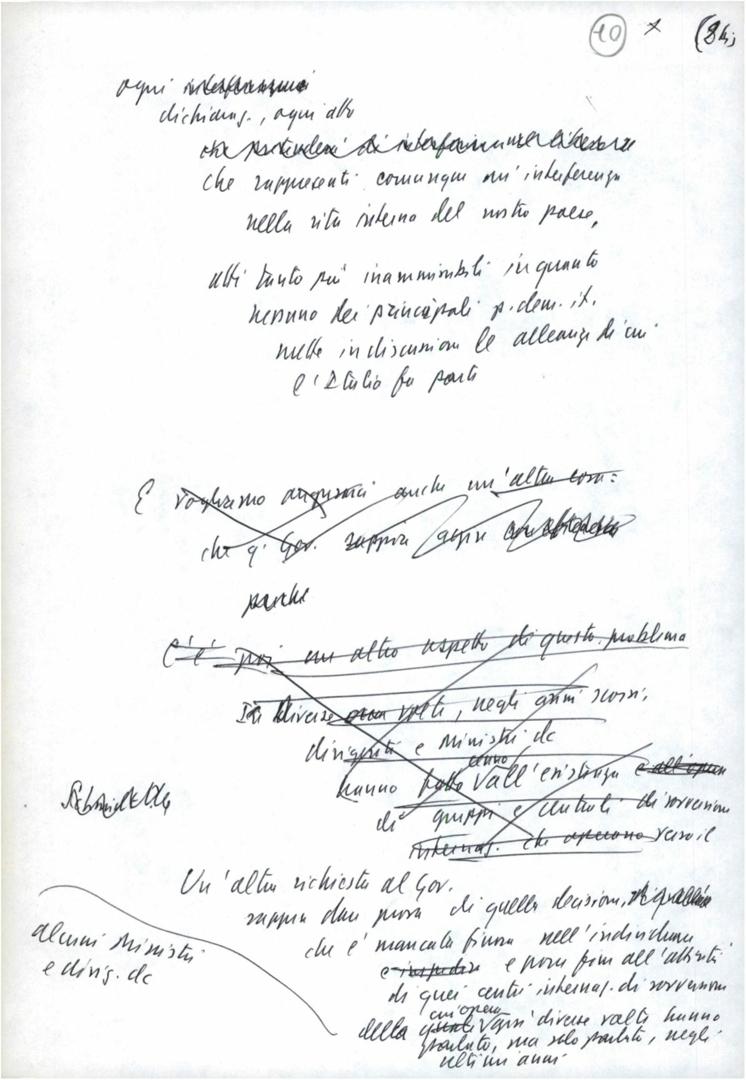 10 x
ogni
dichiaraz., ogni atto
che pretenda di interferire
che rappresenti comunque un'interferenza
nella vita interna del nostro paese,
atti tanto più inammissibili in quanto
nessuno dei principali p. dem. it.
mette in discussione le alleanze di cui
l'Italia fa parte
E vogliamo augurarci anche un'altra cosa:
che q. Gov. sappia agire
perché
C'è poi un altro aspetto di questo problema
Diverse volte, negli anni scorsi,
dirigenti e Ministri dc
hanno fatto cenno all'esistenza
di gruppi e centrali di sovversione
internaz. che operano verso il
Un'altra richiesta al Gov.
sappia dare prova di quella decisione,
che è mancata finora nell'individuare
e porre fine all'attività
di quei centri internaz. di sovversione
della cui opera
diverse volte hanno
parlato, ma solo parlato, negli
ultimi anni
alcuni Ministri
e dirig. dc